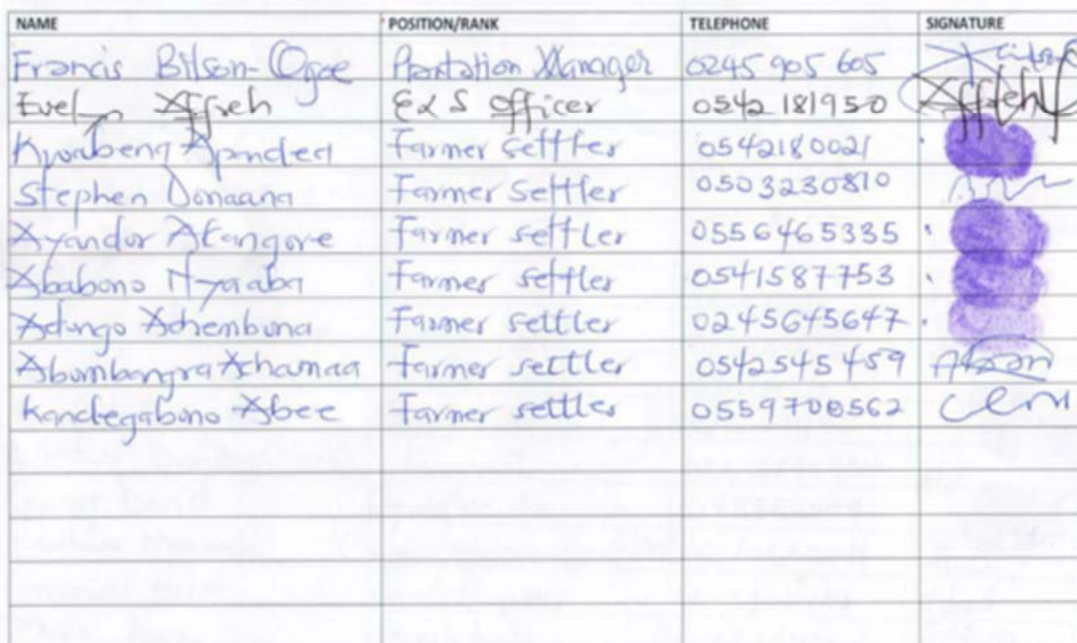 NAME POSITION/RANK TELEPHONE SIGNATURE
Francis Bilson-Ogoe Plantation Manager 0245 905 605
Evelyn Affreh E&S Officer 0542 181950 Affreh
Kwabena Apndea Farmer settler 0542180021
Stephen Donaana Farmer Settler 0503230810
Ayandor Atangore Farmer settler 0556465335
Ababono Nyaaba Farmer settler 0541587753
Adongo Achembuna Farmer settler 0245645647
Abumbangra Achamaa Farmer settler 0542545459
Kandegabono Abee Farmer settler 0559700562